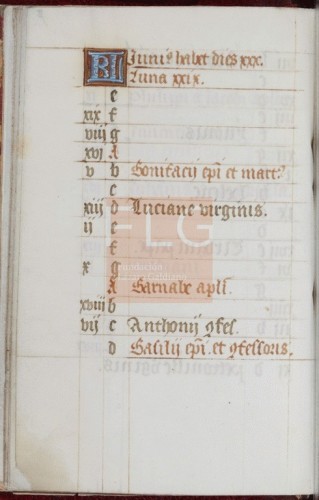 KL Iunius habet dies xxx.
Luna xxix.
e
xix f
viij g
xvj A
v b Bonifacij epi et mart.
c
xiij d Luciane virginis.
ij e
f
x g
A Barnabe apli.
xviij b
vij c Anthonij gfes.
d Basilij epi. et gfessoris.
FLG